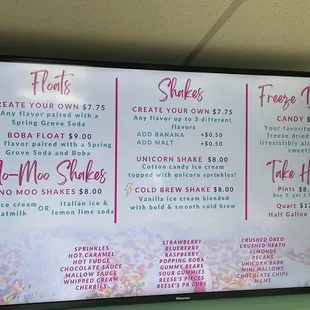 Floats
CREATE YOUR OWN $7.75
Any flavor paired with a
Spring Grove Soda
BOBA FLOAT $9.00
flavor paired with a Spring
Grove Soda and Boba
No-Moo Shakes
NO MOO SHAKES $8.00
ice cream OR Italian ice &
oatmilk lemon lime soda
Shakes
CREATE YOUR OWN $7.75
Any flavor up to 3 different
flavors
ADD BANANA +$0.50
ADD MALT +$0.50
UNICORN SHAKE $8.00
Cotton candy ice cream
topped with unicorn sprinkles!
COLD BREW SHAKE $8.00
Vanilla ice cream blended
with bold & smooth cold brew
Freeze
CANDY
Your favorite
freeze dried
irresistibly
Take
Pints $8
Buy 3, get
Quart $12
Half Gallon
SPRINKLES
HOT CARAMEL
HOT FUDGE
CHOCOLATE SAUCE
MALLOW SAUCE
WHIPPED CREAM
CHERRIES
STRAWBERRY
BLUEBERRY
RASPBERRY
POPPING BOBA
GUMMY BEARS
SOUR GUMMIES
REESE'S PIECES
REESE'S PB CUPS
CRUSHED OREO
CRUSHED HEATH
ALMONDS
PECANS
UNICORN BARK
MINI MALLOWS
CHOCOLATE CHIPS
M&MS
Hisense